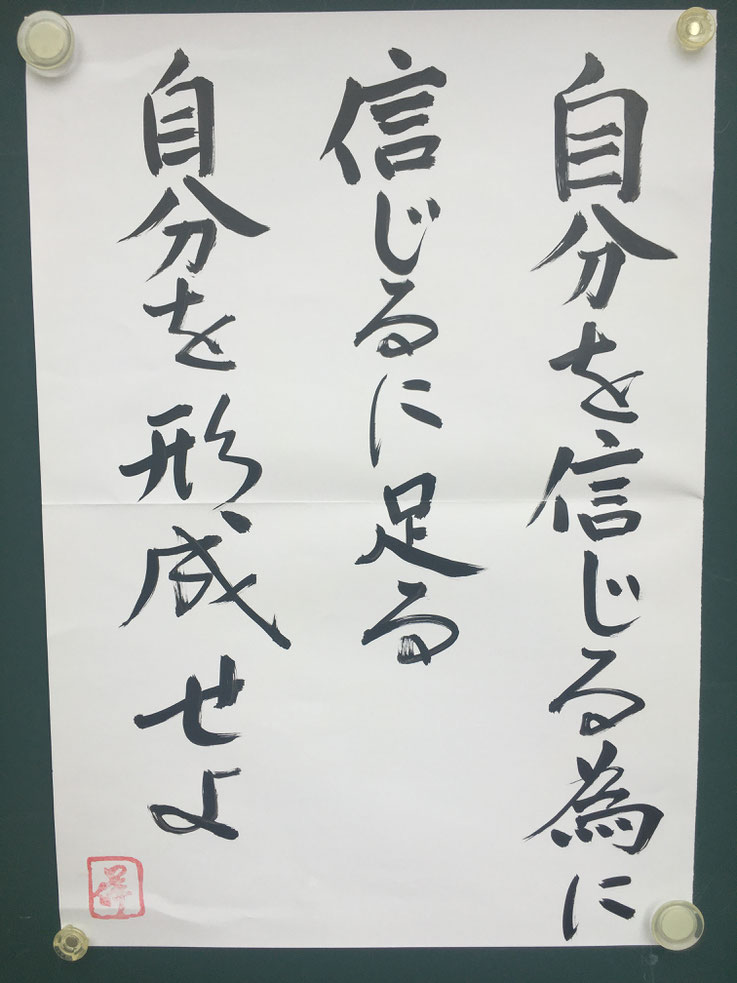 自分を信じる為に
信じるに足る
自分を形成せよ